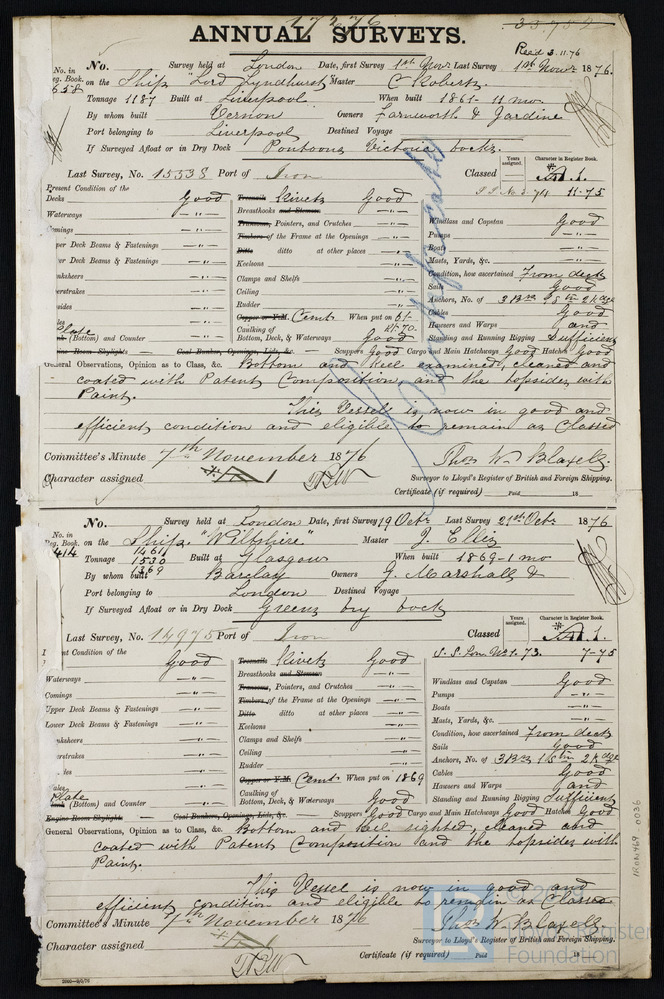 17276
33,752
ANNUAL SURVEYS.
Recd 3.11.76
No. in Reg. Book. 658
No. Survey held at London Date, first Survey 1st Novr Last Survey 1st Novr 1876.
on the Ship "Lord Lyndhurst" Master C Roberts
Tonnage 1187 Built at Liverpool When built 1861-11 mo.
By whom built Vernon Owners Farnworth & Jardine
Port belonging to Liverpool Destined Voyage
If Surveyed Afloat or in Dry Dock Pontoons Victoria Docks.
Last Survey, No. 15538 Port of Iron Classed
Years assigned. Character in Register Book.
A.1.
11-75
Present Condition of the
Decks Good Treenails Rivets Good
Waterways -"- Breasthooks and Stemson -"- Windlass and Capstan Good
Comings -"- Transoms, Pointers, and Crutches -"- Pumps -"-
Upper Deck Beams & Fastenings -"- Timbers of the Frame at the Openings -"- Boats -"-
Lower Deck Beams & Fastenings -"- Ditto ditto at other places -"- Masts, Yards, &c. -"-
Keelsons -"- Condition, how ascertained From deck
Clamps and Shelfs -"- Sails Good
Ceiling -"- Anchors, No. of 3 Brs 1 Stm 2 Kedge
Rudder -"- Cables Good
Copper or Y.M. Cemt. When put on 61- Hawsers and Warps and
Plate (Bottom) and Counter -"- Caulking of Bottom, Deck, & Waterways Good Standing and Running Rigging Sufficient
Engine Room Skylights — Coal Bunkers, Openings, Lids, &c. — Scuppers Good Cargo and Main Hatchways Good Hatches Good
General Observations, Opinion as to Class, &c. Bottom and Keel examined, cleaned and
coated with Patent Composition, and the topsides with
Paint.
This Vessel is now in good and
efficient condition and eligible to remain as Classed
Committee's Minute 7th November 1876 Thos W. Blaxell.
Character assigned A1 Surveyor to Lloyd's Register of British and Foreign Shipping.
Certificate (if required) Paid 18
No. in Reg. Book. 414
No. Survey held at London Date, first Survey 19 Octr Last Survey 21st Octr 1876
on the Ship "Wiltshire" Master J. Ellis
Tonnage 1461 1530 1369 Built at Glasgow When built 1869-1 mo
By whom built Barclay Owners J. Marshall &
Port belonging to London Destined Voyage
If Surveyed Afloat or in Dry Dock Greens Dry Dock
Last Survey, No. 14975 Port of Iron Classed
Years assigned. Character in Register Book.
A.1.
S.S. Lon. No 1-73. 7-75
Present Condition of the
Good Treenails Rivets Good
Waterways -"- Breasthooks and Stemson -"- Windlass and Capstan Good
Comings -"- Transoms, Pointers, and Crutches -"- Pumps -"-
Upper Deck Beams & Fastenings -"- Timbers of the Frame at the Openings -"- Boats -"-
Lower Deck Beams & Fastenings -"- Ditto ditto at other places -"- Masts, Yards, &c. -"-
Keelsons -"- Condition, how ascertained From deck
Clamps and Shelfs -"- Sails Good
Ceiling -"- Anchors, No. of 3 Brs 1 Stm 2 Kedge
Rudder -"- Cables Good
Copper or Y.M. Cemt. When put on 1869 Hawsers and Warps and
Plate (Bottom) and Counter -"- Caulking of Bottom, Deck, & Waterways Good Standing and Running Rigging Sufficient
Engine Room Skylights — Coal Bunkers, Openings, Lids, &c. — Scuppers Good Cargo and Main Hatchways Good Hatches Good
General Observations, Opinion as to Class, &c. Bottom and Keel sighted, cleaned and
coated with Patent Composition and the topsides with
Paint.
This Vessel is now in good and
efficient condition and eligible to remain as Classed
Committee's Minute 7th November 1876 Thos W. Blaxell
Character assigned A1 Surveyor to Lloyd's Register of British and Foreign Shipping.
Certificate (if required) Paid 18
IRON469 0036
Lloyd's Register Foundation